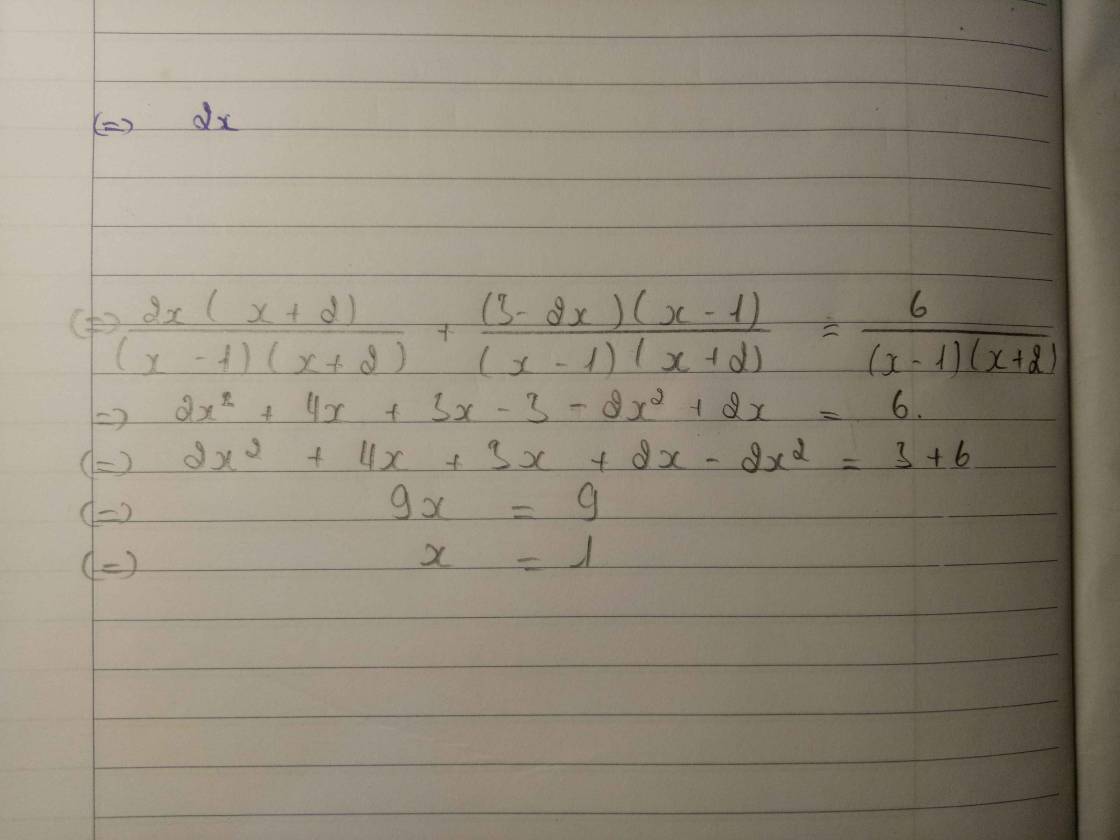 (=) 2x
(=) 2x ( x + 2) / (x - 1) (x + 2) + (3 - 2x) (x - 1) / (x - 1) (x + 2) = 6 / (x - 1) (x + 2)
=) 2x² + 4x + 3x - 3 - 2x² + 2x = 6.
(=) 2x² + 4x + 3x + 2x - 2x² = 3 + 6
(=) 9x = 9
(=) x = 1